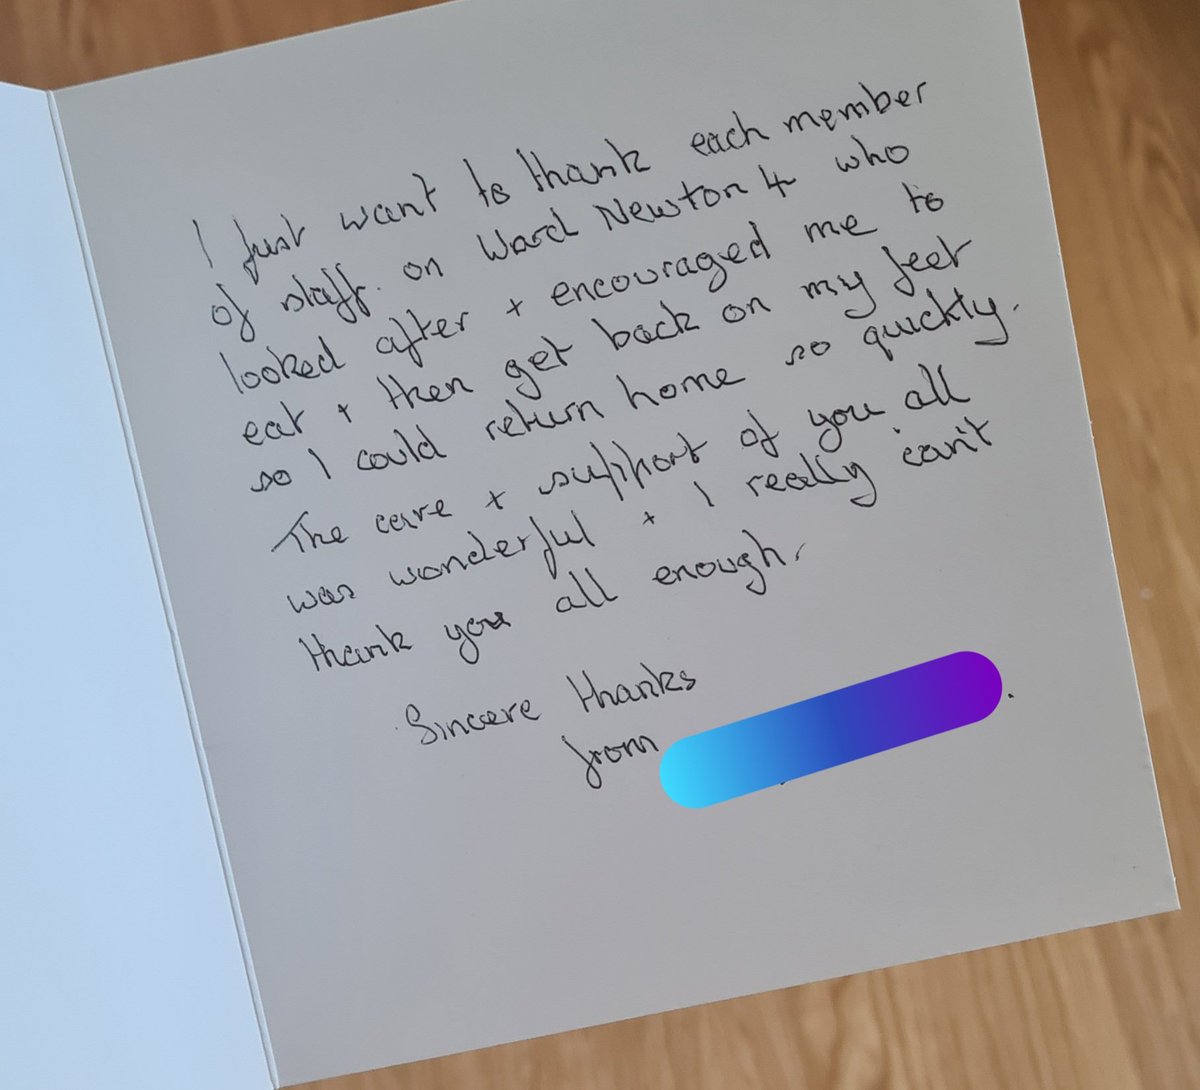 I just want to thank each member
of staff. on Ward Newton 4 who
looked after + encouraged me to
eat + then get back on my feet
so I could return home so quickly.
The care + support of you all
was wonderful + I really can't
thank you all enough.
Sincere thanks
from